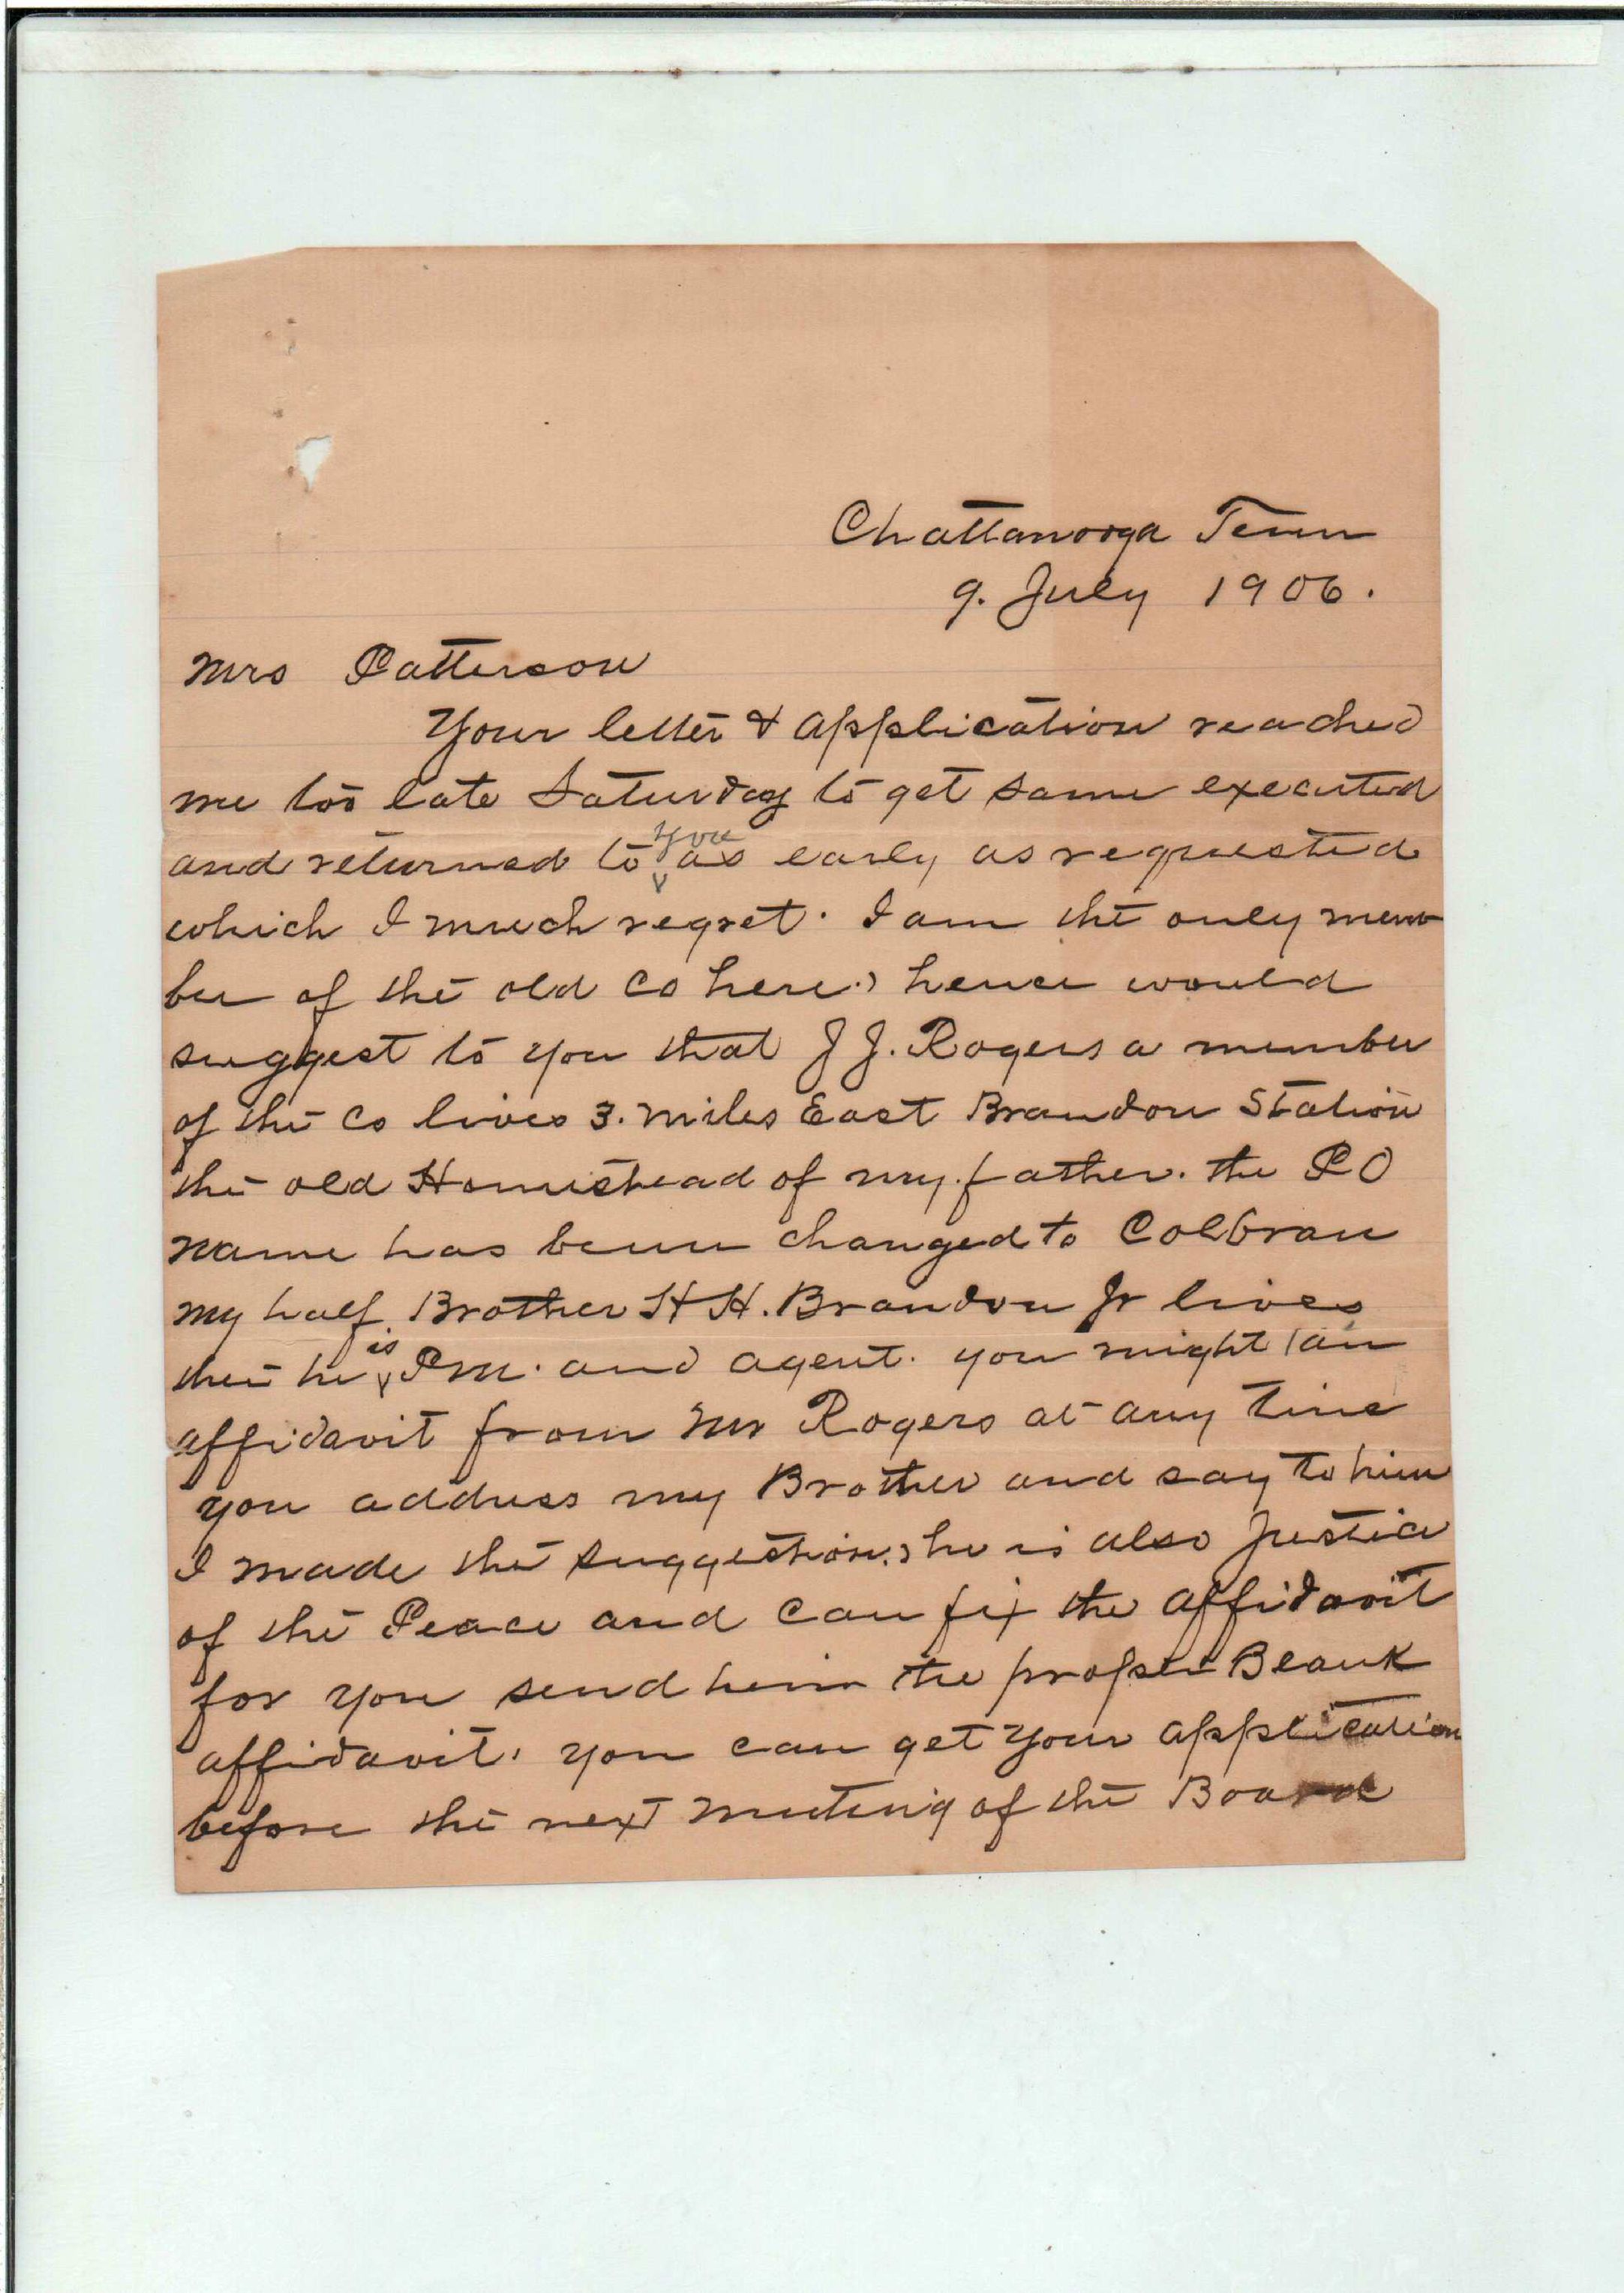 Chattanooga Tenn
9. July 1906.
Mrs Patterson
Your letter & application reached
me too late Saturday to get same executed
and returned to you as early as requested
which I much regret. I am the only mem
ber of the old Co here, hence would
suggest to you that J J. Rogers a member
of the Co lives 3. miles East Brandon Station
the old Homestead of my father. the PO
name has been changed to Colbran
my half Brother H H. Brandon Jr lives
there he is P.M. and agent. you might an
affidavit from Mr Rogers at any time
you address my Brother and say to him
I made the suggestion, he is also Justice
of the Peace and can fix the affidavit
for you send him the proper Blank
affidavit, you can get your application
before the next meeting of the Board